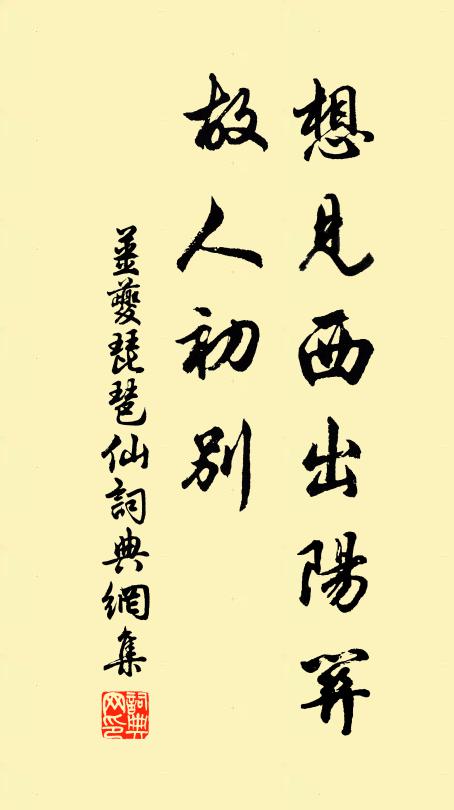 想見西出陽關
故人初別
姜夔琵琶仙詞典網集
詞典網印